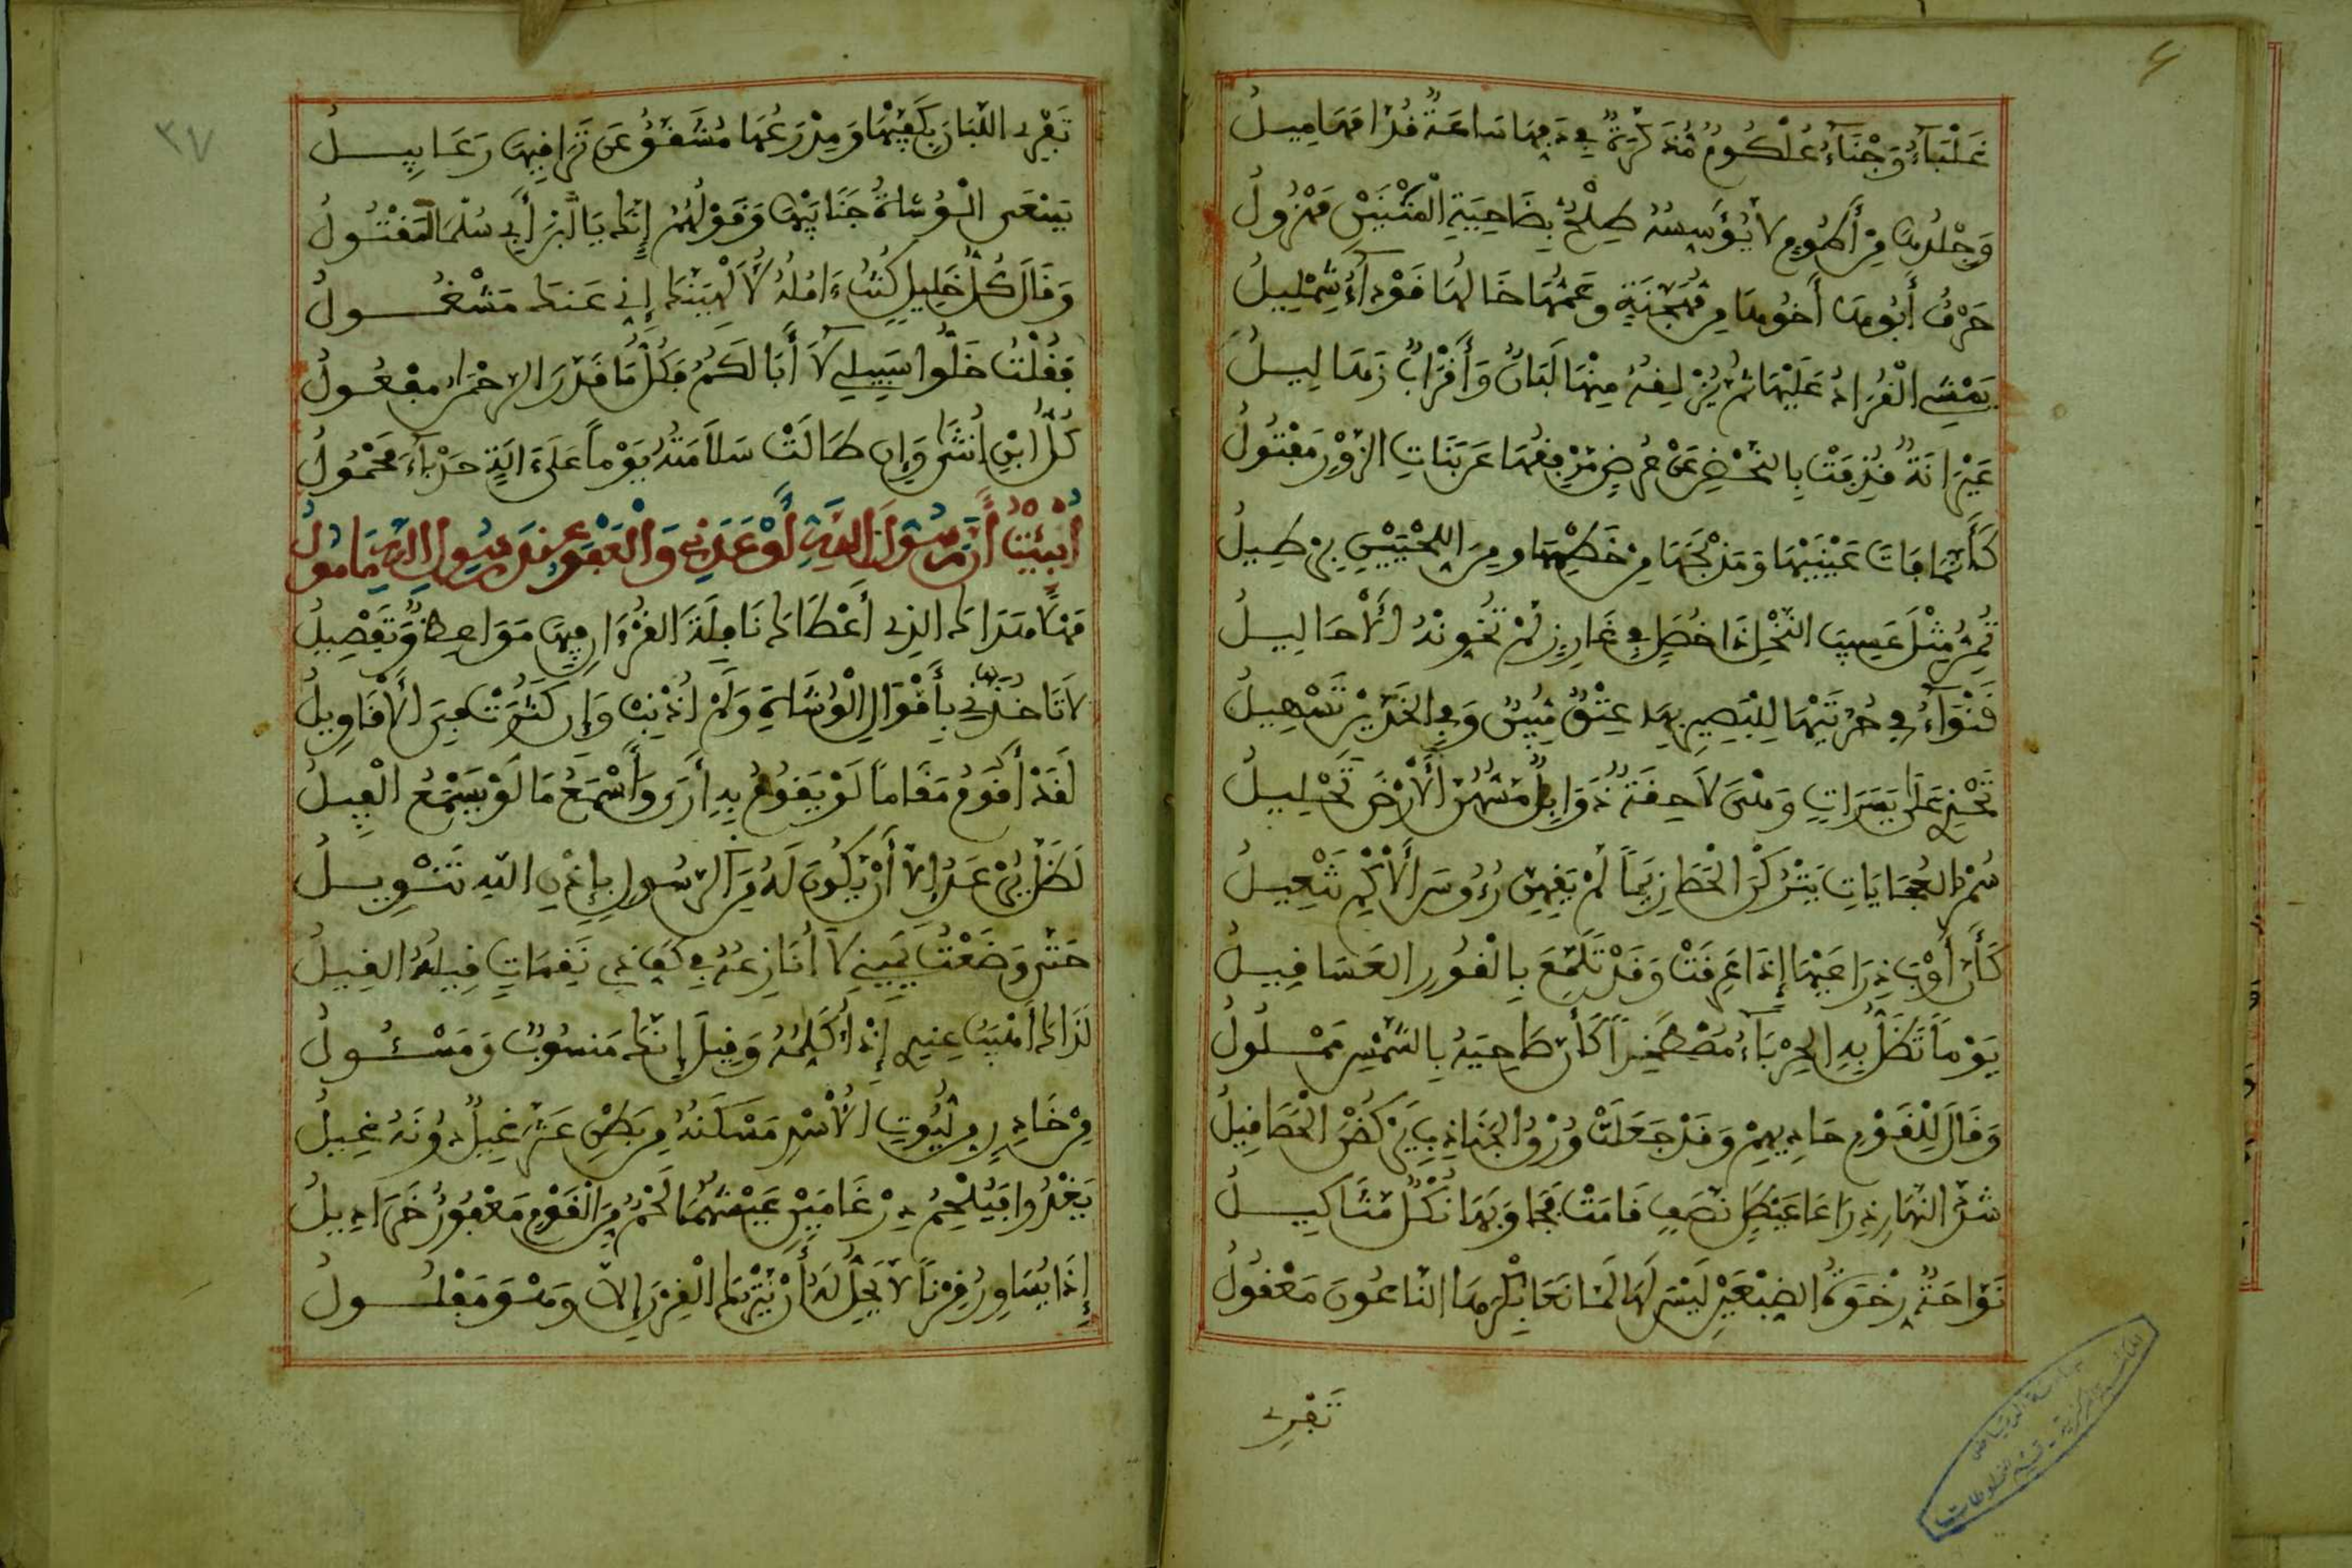 غَلْبَآءُ وَجْنَآءُ عُلْكُومٌ مُذَكَّرَةٌ فِي دَفِّهَا سَاعَةٌ قُدَّامَهَا مِيلُ
وَجِلْدُهَا مِنْ أَطُومٍ لَا يُؤَيِّسُهُ طِلْحٌ بِضَاحِيَةِ الْمَتْنَيْنِ مَهْزُولُ
حَرْفٌ أَبُوهَا أَخُوهَا مِن مُّهَجَّنَةٍ وَعَمُّهَا خَالُهَا قَوْدَآءُ شِمْلِيلُ
يَمْشِي الْقُرَادُ عَلَيْهَا ثُمَّ يُزْلِقُهُ مِنْهَا لَبَانٌ وَأَقْرَابٌ زَهَالِيلُ
عَيْرَانَةٌ قُذِفَتْ بِالنَّحْضِ عَنْ عُرُضٍ مِرْفَقُهَا عَن بَنَاتِ الزَّوْرِ مَفْتُولُ
كَأَنَّمَا فَاتَ عَيْنَيْهَا وَمَذْبَحَهَا مِنْ خَطْمِهَا وَمِنَ اللَّحْيَيْنِ بِرْطِيلُ
تُمِرُّ مِثْلَ عَسِيبِ النَّخْلِ ذَا خُصَلٍ فِي غَارِزٍ لَمْ تَخَوَّنْهُ الْأَحَالِيلُ
قَنْوَآءُ فِي حُرَّتَيْهَا لِلْبَصِيرِ بِهَا عِتْقٌ مُّبِينٌ وَفِي الْخَدَّيْنِ تَسْهِيلُ
تَخْدِي عَلَى يَسَرَاتٍ وَهْيَ لَاحِقَةٌ ذَوَابِلٌ مَسُّهُنَّ الْأَرْضَ تَحْلِيلُ
سُمْرُ الْعُجَايَاتِ يَتْرُكْنَ الْحَصَا زِيَمًا لَمْ يَقِهِنَّ رُءُوسَ الْأُكْمِ تَنْعِيلُ
كَأَنَّ أَوْبَ ذِرَاعَيْهَا إِذَا عَرِقَتْ وَقَدْ تَلَفَّعَ بِالْقُورِ الْعَسَاقِيلُ
يَوْمًا تَظَلُّ بِهِ الْحِرْبَآءُ مُصْطَخِدًا كَأَنَّ ضَاحِيَهُ بِالشَّمْسِ مَمْلُولُ
وَقَالَ لِلْقَوْمِ حَادِيهِمْ وَقَدْ جَعَلَتْ وُرْقُ الْجَنَادِبِ يَرْكُضْنَ الْحَصَا قِيلُ
شَدَّ النَّهَارِ ذِرَاعَا عَيْطَلٍ نَصَفٍ قَامَتْ فَجَاوَبَهَا نُكْدٌ مَثَاكِيلُ
نَوَّاحَةٌ رِخْوَةُ الضَّبْعَيْنِ لَيْسَ لَهَا لَمَّا نَعَا بِكْرَهَا النَّاعُونَ مَعْقُولُ
تَفْرِي
٣٧
تَفْرِي اللَّبَانَ بِكَفَّيْهَا وَمِدْرَعُهَا مُشَقَّقٌ عَن تَرَاقِيهَا رَعَابِيلُ
يَسْعَى الْوُشَاةُ جَنَابَيْهَا وَقَوْلُهُمُ إِنَّكَ يَا ابْنَ أَبِي سُلْمَا لَمَقْتُولُ
وَقَالَ كُلُّ خَلِيلٍ كُنْتُ ءَامُلُهُ لَا أُلْهِيَنَّكَ إِنِّي عَنكَ مَشْغُولُ
فَقُلْتُ خَلُّوا سَبِيلِي لَا أَبَا لَكُمُ فَكُلُّ مَا قَدَّرَ الرَّحْمَٰنُ مَفْعُولُ
كُلُّ ابْنِ أُنثَى وَإِن طَالَتْ سَلَامَتُهُ يَوْمًا عَلَى ءَالَةٍ حَدْبَآءَ مَحْمُولُ
أُنْبِئْتُ أَنَّ رَسُولَ اللَّهِ أَوْعَدَنِي وَالْعَفْوُ عِندَ رَسُولِ اللَّهِ مَأْمُولُ
مَهْلًا هَدَاكَ الَّذِي أَعْطَاكَ نَافِلَةَ الْقُرْءَانِ فِيهَا مَوَاعِظٌ وَّتَفْصِيلُ
لَا تَأْخُذَنِّي بِأَقْوَالِ الْوُشَاةِ وَلَمْ أُذْنِبْ وَإِن كَثُرَتْ فِيَّ الْأَقَاوِيلُ
لَقَدْ أَقُومُ مَقَامًا لَوْ يَقُومُ بِهِ أَرَى وَأَسْمَعُ مَا لَوْ يَسْمَعُ الْفِيلُ
لَظَلَّ يُرْعَدُ إِلَّا أَنْ يَّكُونَ لَهُ مِنَ الرَّسُولِ بِإِذْنِ اللَّهِ تَنْوِيلُ
حَتَّى وَضَعْتُ يَمِينِي لَا أُنَازِعُهُ فِي كَفِّ ذِي نَقِمَاتٍ قِيلُهُ الْقِيلُ
لَذَاكَ أَهْيَبُ عِندِي إِذْ أُكَلِّمُهُ وَقِيلَ إِنَّكَ مَنسُوبٌ وَمَسْئُولُ
مِنْ خَادِرٍ مِن لُّيُوثِ الْأُسْدِ مَسْكَنُهُ مِن بَطْنِ عَثَّرَ غِيلٌ دُونَهُ غِيلُ
يَغْدُوا فَيُلْحِمُ ضِرْغَامَيْنِ عَيْشُهُمَا لَحْمٌ مِنَ الْقَوْمِ مَعْفُورٌ خَرَادِيلُ
إِذَا يُسَاوِرُ قِرْنًا لَا يَحِلُّ لَهُ أَنْ يَّتْرُكَ الْقِرْنَ إِلَّا وَهْوَ مَفْلُولُ